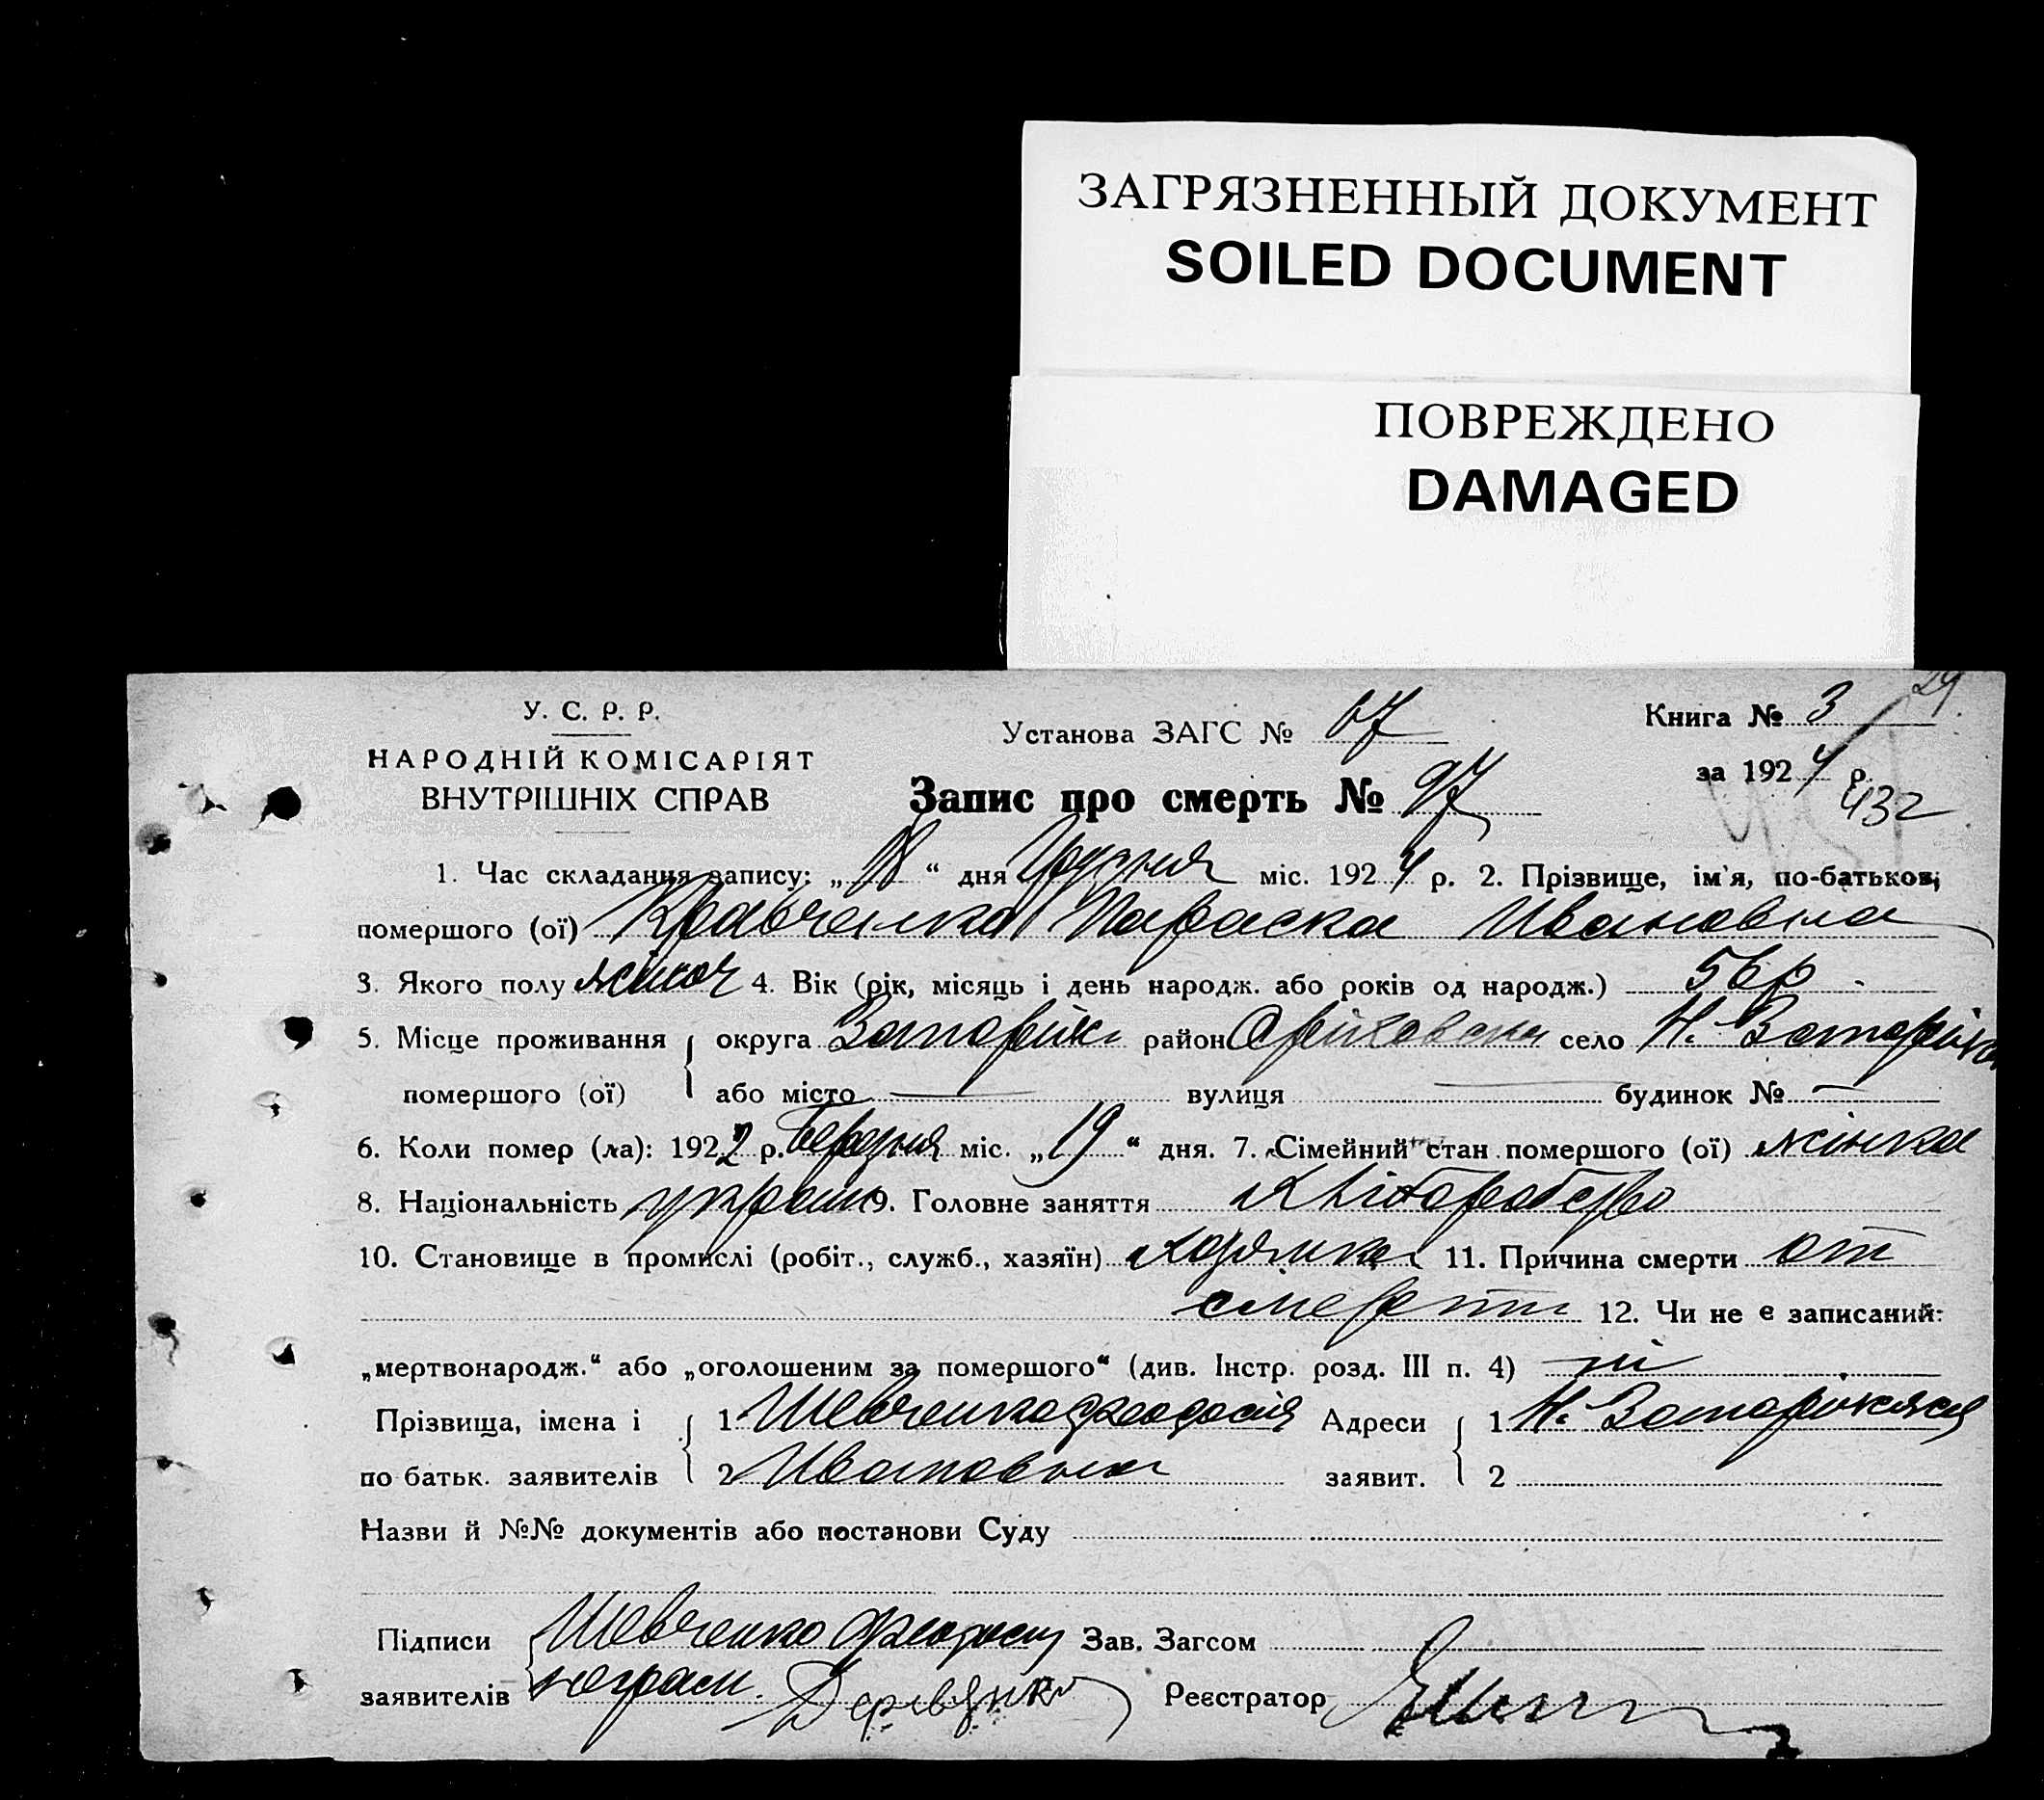 ЗАГРЯЗНЕННЫЙ ДОКУМЕНТ
SOILED DOCUMENT
ПОВРЕЖДЕНО
DAMAGED
29
У. С. Р. Р.
НАРОДНІЙ КОМІСАРІЯТ
ВНУТРІШНІХ СПРАВ
Установа ЗАГС № 67
Книга № 3
за 1924 р.
432
Запис про смерть № 97
1. Час складання запису: „18“ дня Грудня міс. 1924 р. 2. Прізвище, ім'я, по-батькові,
помершого (ої) Кравченко Параска Ивановна
3. Якого полу жіноч 4. Вік (рік, місяць і день народж. або років од народж.) 56 р
5. Місце проживання округа Запоріжс район Оріховский село Н. Запоріжка
помершого (ої) або місто — вулиця — будинок № —
6. Коли помер (ла): 1922 р. березня міс. „19“ дня. 7. Сімейний стан помершого (ої) жінка
8. Національність україн 9. Головне заняття хліборобство
10. Становище в промислі (робіт., служб., хазяїн) 11. Причина смерти от
смерти 12. Чи не є записаний:
„мертвонародж.“ або „оголошеним за помершого“ (див. Інстр. розд. III п. 4) ні
Прізвища, імена і 1 Шевченко Феодосія Адреси 1 Н. Запоріжжя
по батьк. заявителів 2 Ивановна заявит. 2
Назви й №№ документів або постанови Суду
Підписи Шевченко Феодосия Зав. Загсом
заявителів неграм. Деревянко Реєстратор